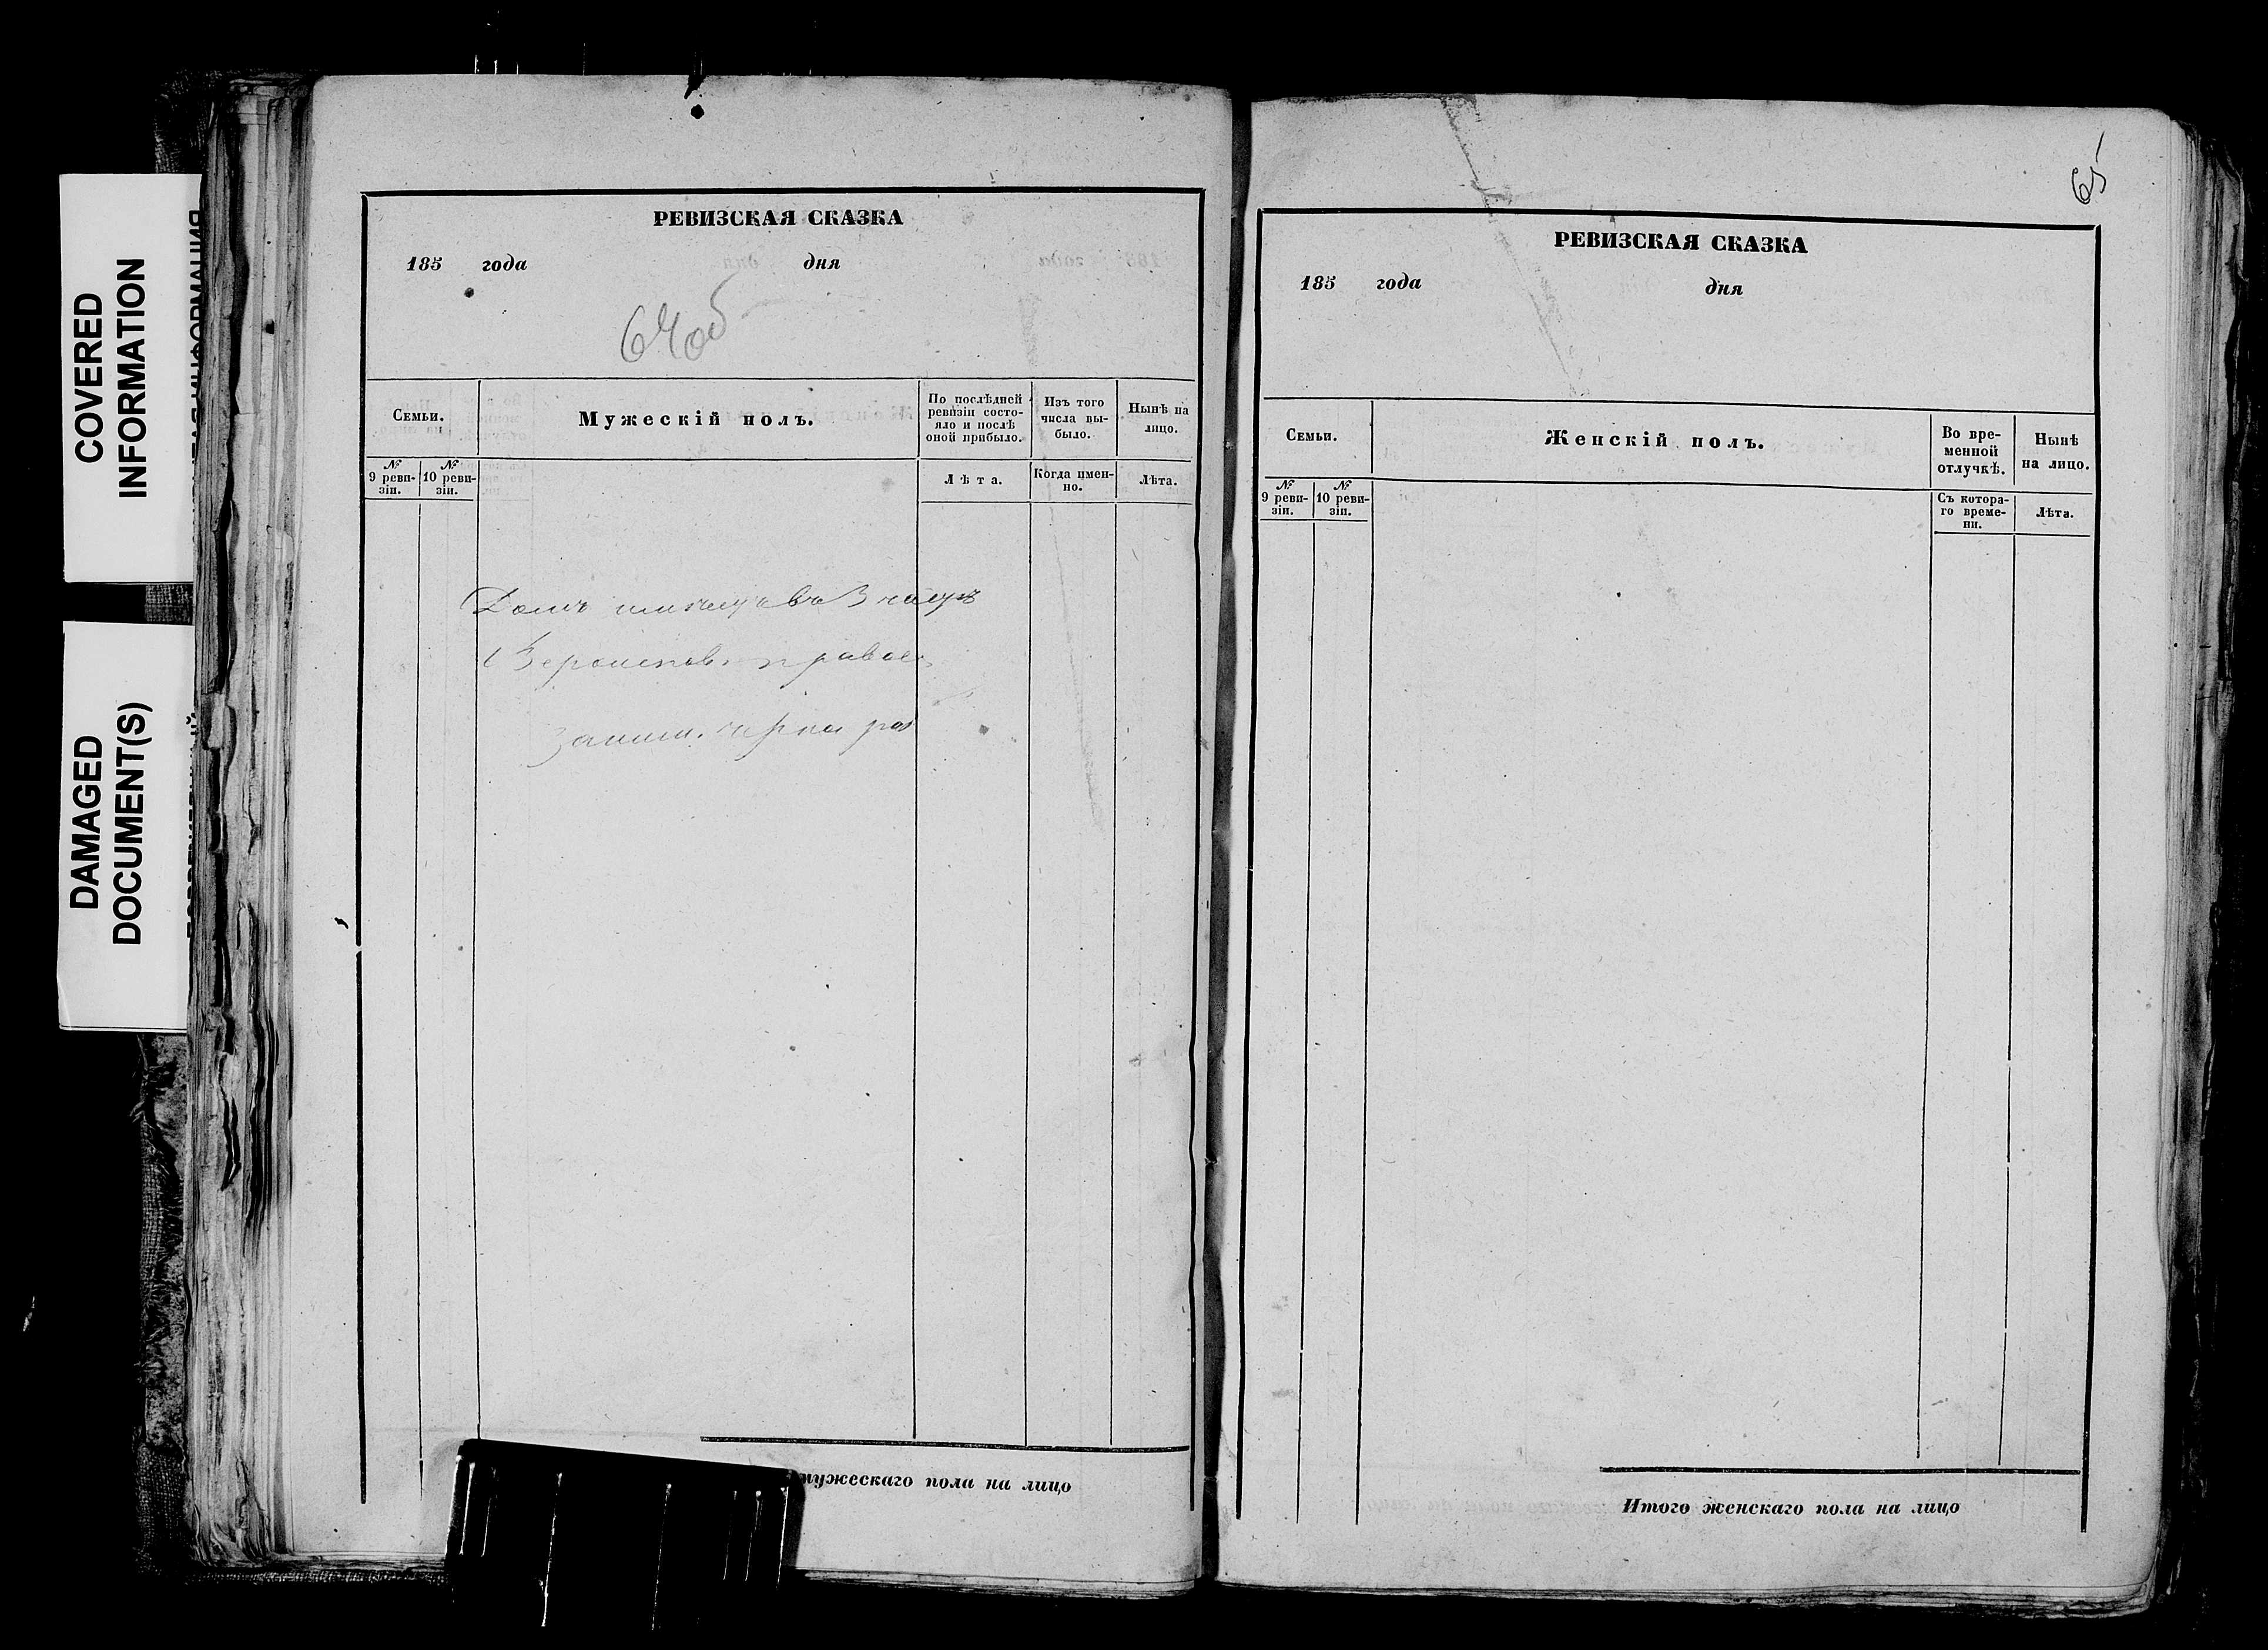 COVERED
INFORMATION
DAMAGED
DOCUMENT(S)
РЕВИЗСКАЯ СКАЗКА
185 года дня
64об
Семьи.
Мужескій полъ.
По послѣдней
ревизіи состо-
яло и послѣ
оной прибыло.
Изъ того
числа вы-
было.
Нынѣ на
лицо.
№
9 реви-
зіи.
№
10 реви-
зіи.
Лѣта.
Когда имен-
но.
Лѣта.
мужескаго пола на лицо
65
РЕВИЗСКАЯ СКАЗКА
185 года дня
Семьи.
Женскій полъ.
Во вре-
менной
отлучкѣ.
Нынѣ
на лицо.
№
9 реви-
зіи.
№
10 реви-
зіи.
Съ котора-
го време-
ни.
Лѣта.
Итого женскаго пола на лицо